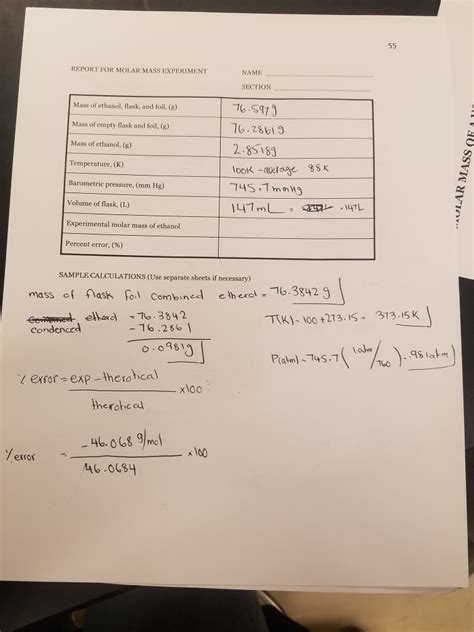 55
REPORT FOR MOLAR MASS EXPERIMENT NAME
SECTION
Mass of ethanol, flask, and foil, (g) 76.597g
Mass of empty flask and foil, (g) 76.2861g
Mass of ethanol, (g) 2.8518g
Temperature, (K) 100K - average 88K
Barometric pressure, (mm Hg) 745.7mmHg
Volume of flask, (L) 147mL = .147L
Experimental molar mass of ethanol
Percent error, (%)
SAMPLE CALCULATIONS (Use separate sheets if necessary)
mass of flask foil combined etherol = 76.3842g
condenced ethorol = 76.3842
- 76.2861
0.0981g
T(K) = 100 + 273.15 = 373.15K
P(atm) = 745.7 (1atm/760) = .981atm
% error = exp - therotical
x100
therotical
% error = -46.068 g/mol
x100
46.0684
MOLAR MASS OF A